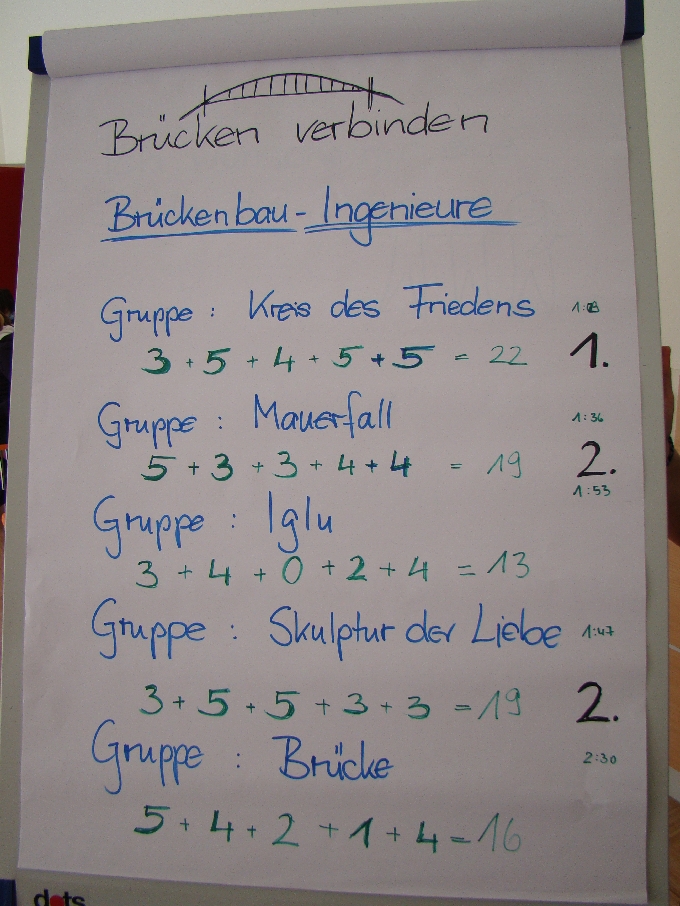 Brücken verbinden
Brückenbau - Ingenieure
Gruppe : Kreis des Friedens
3 + 5 + 4 + 5 + 5 = 22 1.
Gruppe : Mauerfall 1:36
5 + 3 + 3 + 4 + 4 = 19 2.
1:53
Gruppe : Iglu
3 + 4 + 0 + 2 + 4 = 13
Gruppe : Skulptur der Liebe 1:47
3 + 5 + 5 + 3 + 3 = 19 2.
Gruppe : Brücke 2:30
5 + 4 + 2 + 1 + 4 = 16
dots